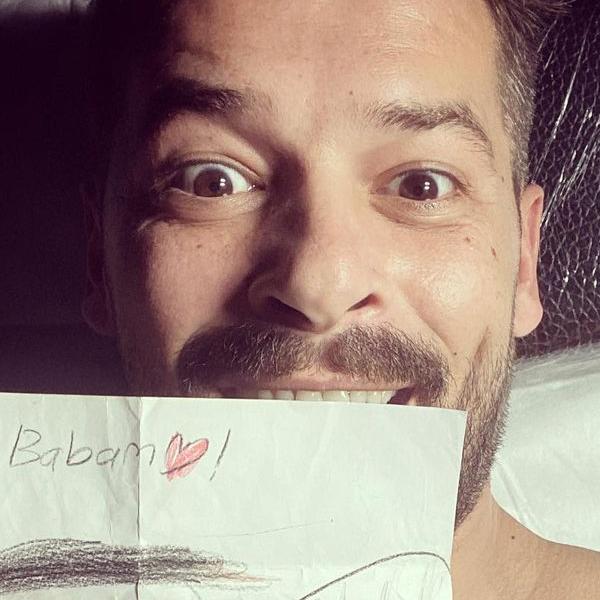 Babam ❤️!